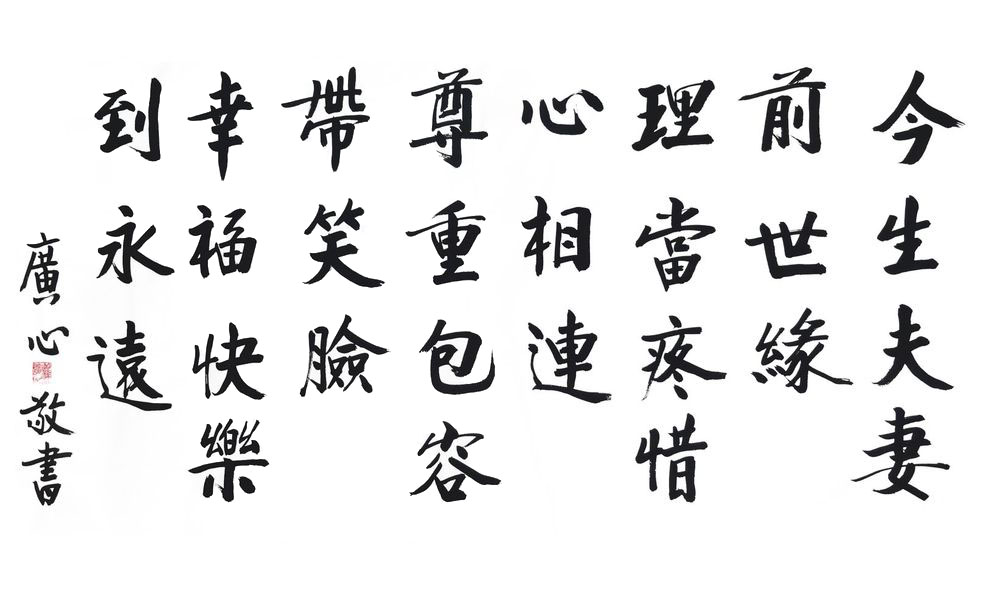 今生夫妻
前世緣
理當疼惜
心相連
尊重包容
帶笑臉
幸福快樂
到永遠
廣心敬書